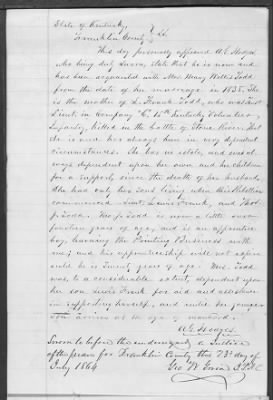 State of Kentucky
Franklin County } Sct.
This day personally appeared A G Hodges
who being duly sworn, states that he is now and
has been acquainted with Mrs. Mary Willis Todd
from the date of her marriage in 1835. She
is the mother of L. Frank Todd, who was 1st
Lieut. in Company "C" 15th Kentucky Volunteer
Infantry, killed in the Battle of Stone River. That
she is and has always been in very dependent
circumstances. She has no estate, and was
always dependent upon her own and her children
for a support, since the death of her husband.
She had only two sons living when this Rebellion
commenced - Lieut. Lewis Frank, and Thos.
J. Todd. Thos. J. Todd is now a little over
fourteen years of age, and is an apprentice
boy, learning the Printing Business with
me; and his apprenticeship will not expire
until he is twenty years of age. Mrs. Todd
was, to a considerable extent, dependent upon
her son Lewis Frank for aid and assistance
in supporting herself, and until her younger
son arrives at the age of manhood.
A. G. Hodges.
Sworn to before the undersigned a Justice
of the peace for Franklin County this 23d day of
July 1864
Geo W. Gwin J.P.F.C.